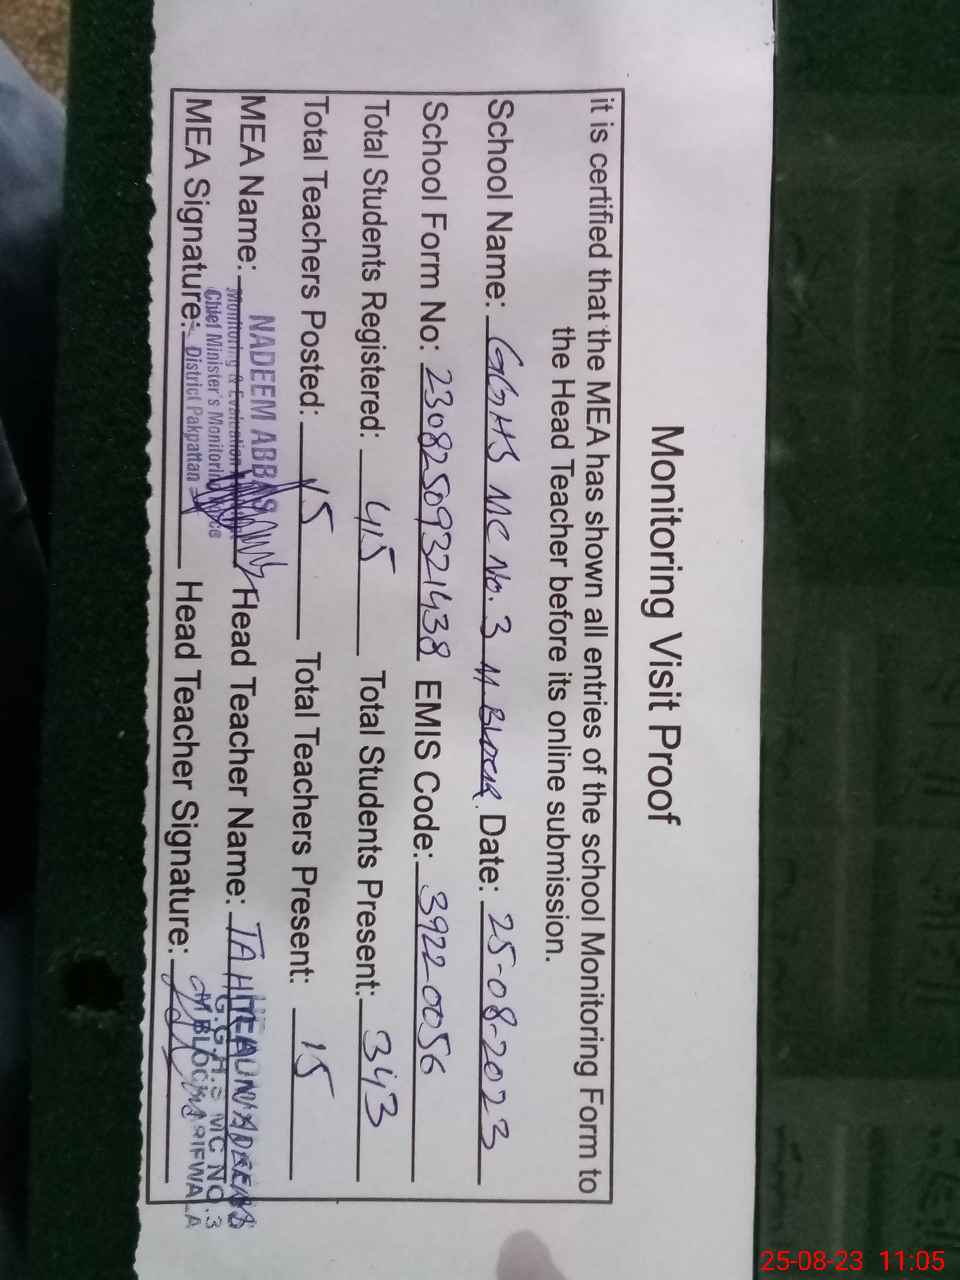 Monitoring Visit Proof
it is certified that the MEA has shown all entries of the school Monitoring Form to
the Head Teacher before its online submission.
School Name: GGHS MC No. 3 M Block. Date: 25-08-2023
School Form No: 23082509321438 EMIS Code: 39220056
Total Students Registered: 415 Total Students Present: 343
Total Teachers Posted: 15 Total Teachers Present: 15
MEA Name: NADEEM ABBAS Head Teacher Name: TAHIRA
Monitoring & Evaluation
Chief Minister's Monitoring
MEA Signature: District Pakpattan Head Teacher Signature:
G.G.H.S MC NO.3
M BLOCK ARIFWALA
25-08-23 11:05